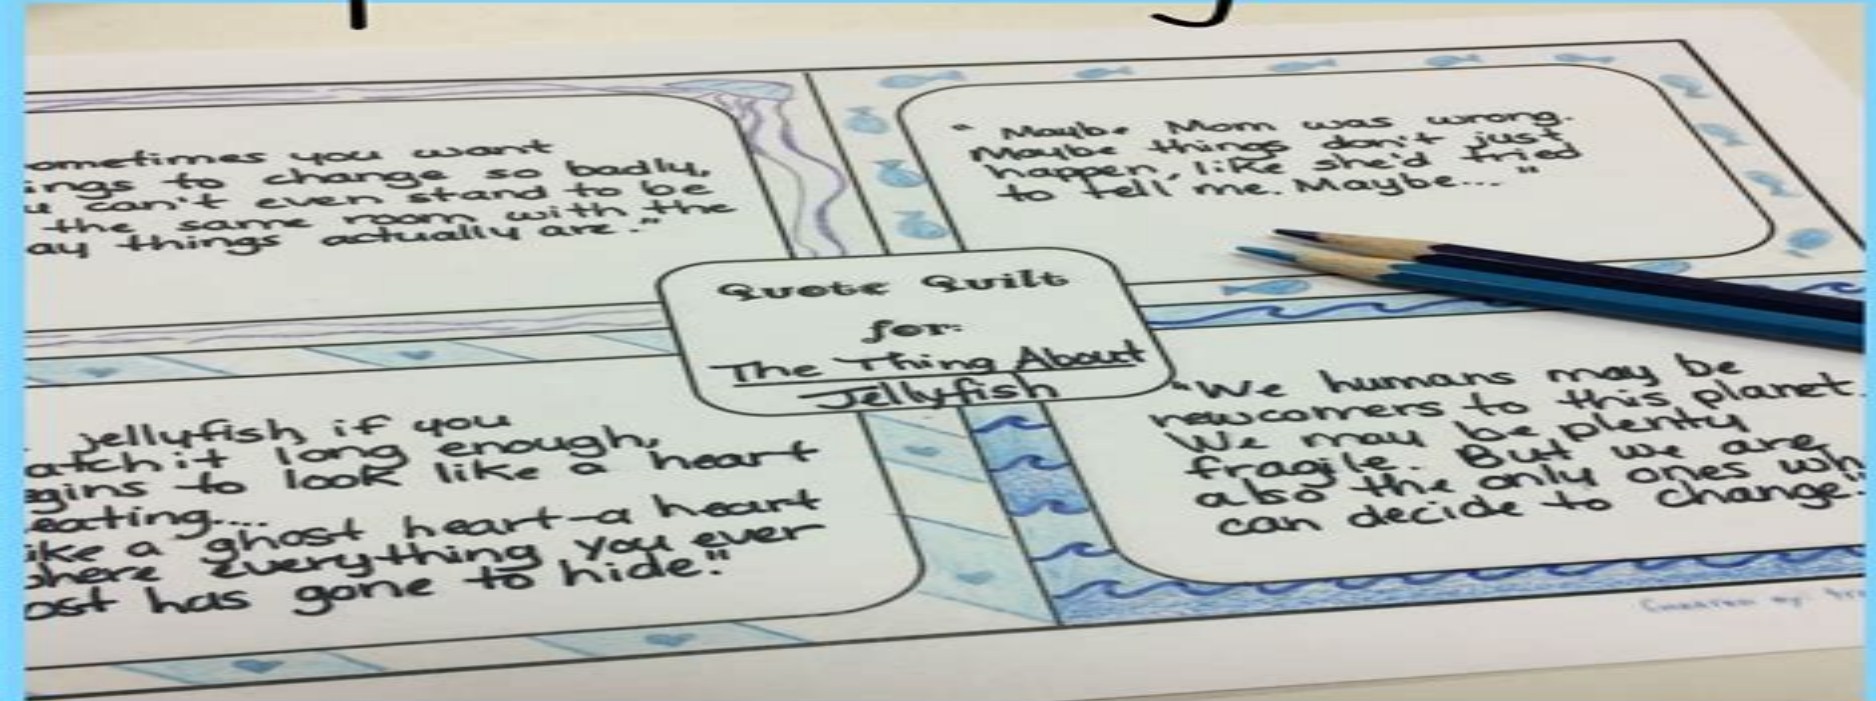 ometimes you want
ings to change so badly,
u can't even stand to be
the same room with the
ay things actually are."
"Maybe Mom was wrong.
Maybe things don't just
happen, like she'd tried
to tell me. Maybe..."
Quote Quilt
for:
The Thing About
Jellyfish
jellyfish if you
atch it long enough,
gins to look like a heart
eating....
ike a ghost heart-a heart
where everything you ever
ost has gone to hide."
"We humans may be
newcomers to this planet.
We may be plenty
fragile. But we are
also the only ones wh
can decide to change."
Created by: